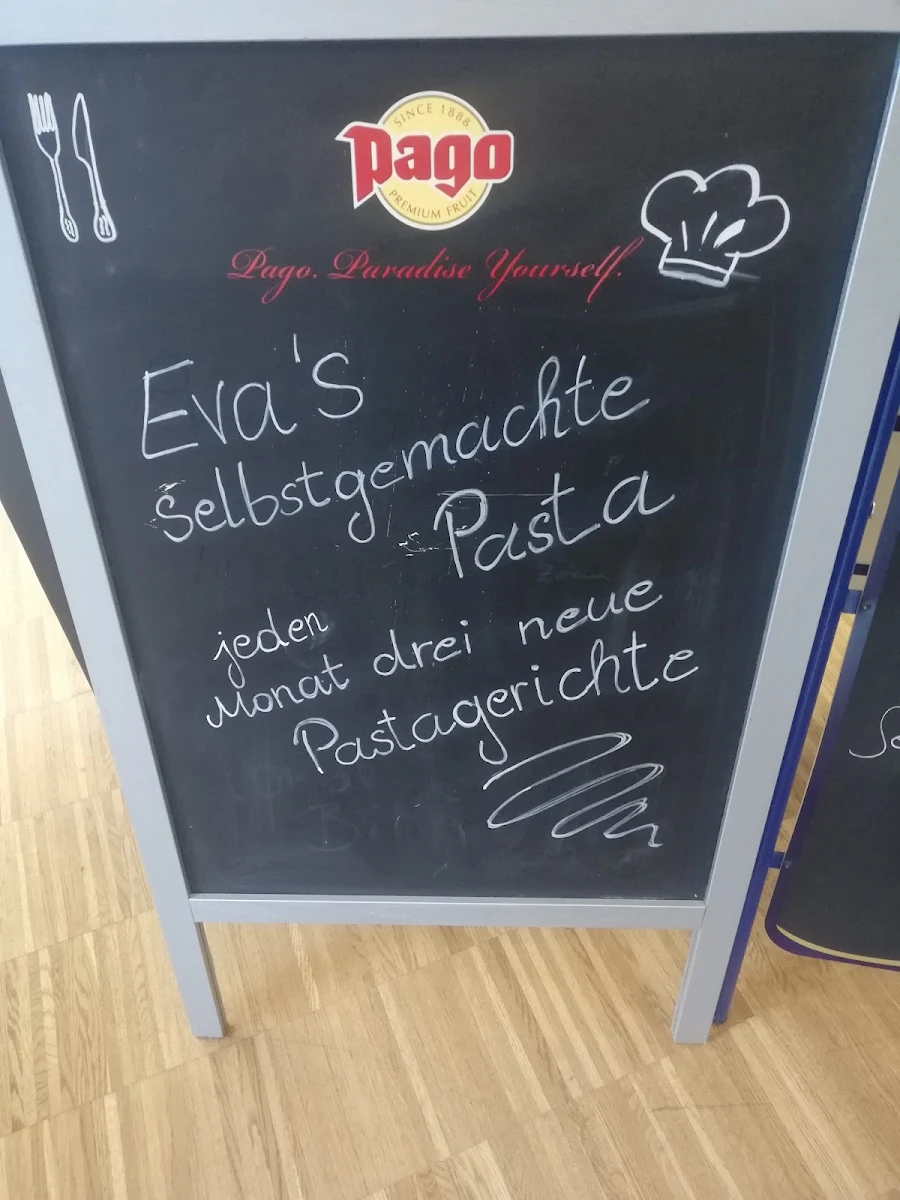 SINCE 1888.
pago
PREMIUM FRUIT
Pago. Paradise Yourself.
Eva's
selbstgemachte
Pasta
jeden
Monat drei neue
Pastagerichte